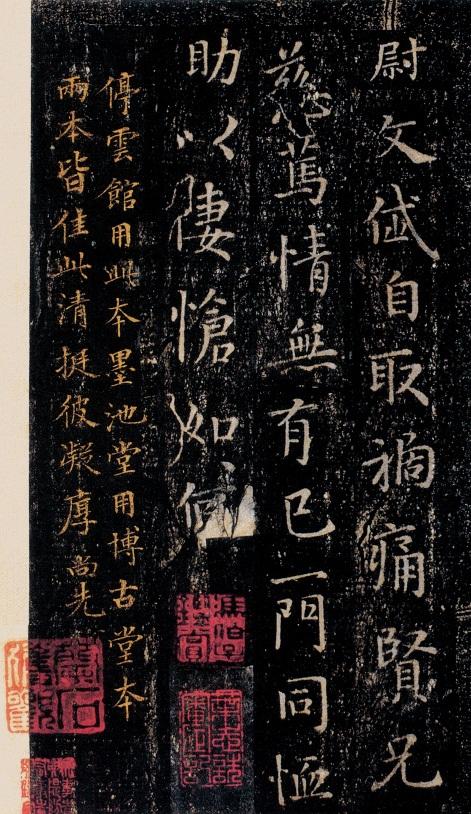 尉文武自取禍痛賢兄
慈篤情無有已一門同恤
助以悽愴如何
停雲館用此本墨池堂用博古堂本
兩本皆佳此清挺彼凝厚 尚先